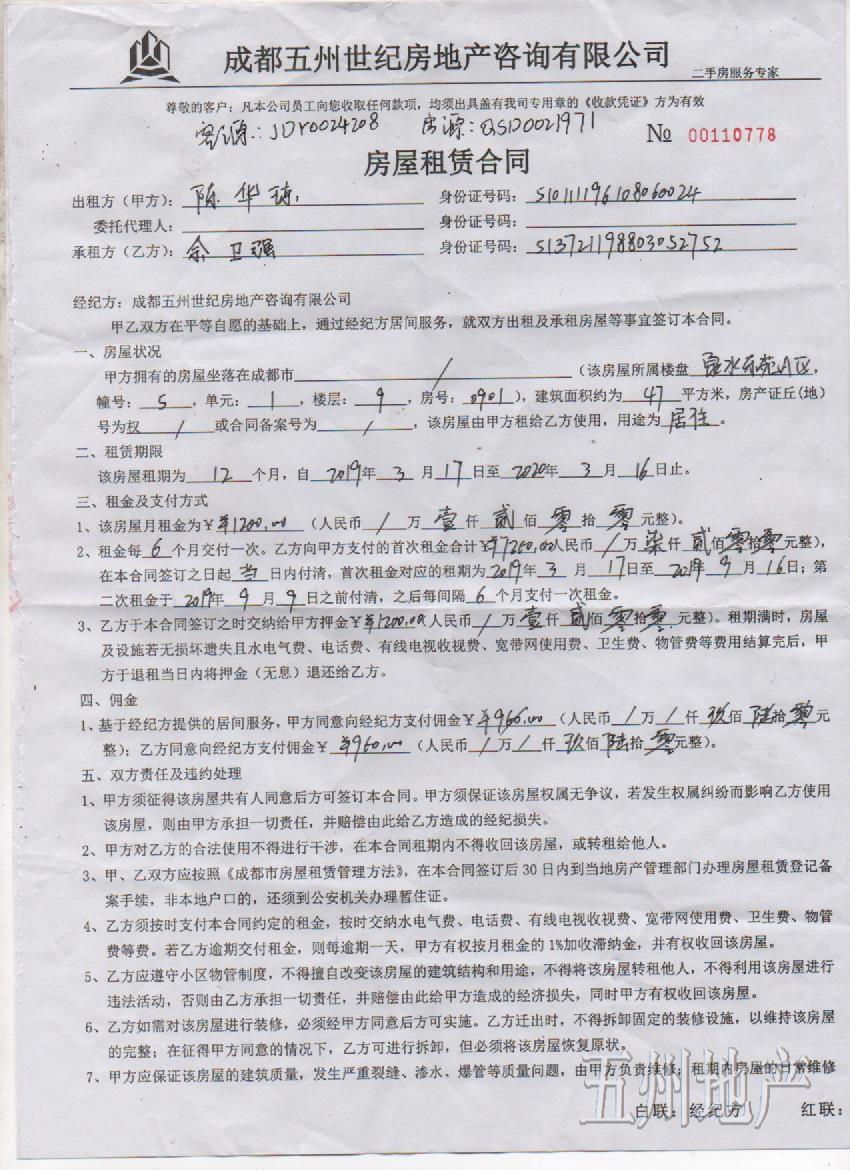 成都五州世纪房地产咨询有限公司
二手房服务专家
尊敬的客户：凡本公司员工向您收取任何款项，均须出具盖有我司专用章的《收款凭证》方为有效
客源：JDY0024208 房源：QSD0021971
№ 00110778
房屋租赁合同
出租方（甲方）：陈华 身份证号码：510111196108060024
委托代理人： 身份证号码：
承租方（乙方）：余卫强 身份证号码：513721198803052752
经纪方：成都五州世纪房地产咨询有限公司
甲乙双方在平等自愿的基础上，通过经纪方居间服务，就双方出租及承租房屋等事宜签订本合同。
一、房屋状况
甲方拥有的房屋坐落在成都市 / （该房屋所属楼盘 水乐苑A区，
幢号：5，单元：1，楼层：9，房号：0901），建筑面积约为 47 平方米，房产证丘(地)
号为权 / 或合同备案号为 / ，该房屋由甲方租给乙方使用，用途为 居住。
二、租赁期限
该房屋租期为 12 个月，自 2019年 3 月 17日至 2020年 3 月 16日止。
三、租金及支付方式
1、该房屋月租金为￥¥1200.00（人民币 / 万 壹 仟 贰 佰 零 拾 零 元整）。
2、租金每 6 个月交付一次。乙方向甲方支付的首次租金合计¥7200.00人民币 / 万 柒 仟 贰佰零拾零元整），
在本合同签订之日起 当 日内付清，首次租金对应的租期为2019年 3 月 17日至 2019年 9 月 16日；第
二次租金于 2019年 9 月 9 日之前付清，之后每间隔 6 个月支付一次租金。
3、乙方于本合同签订之时交纳给甲方押金￥¥1200.00人民币 / 万 壹仟 贰佰 零拾零元整）。租期满时，房屋
及设施若无损坏遗失且水电气费、电话费、有线电视收视费、宽带网使用费、卫生费、物管费等费用结算完后，甲
方于退租当日内将押金（无息）退还给乙方。
四、佣金
1、基于经纪方提供的居间服务，甲方同意向经纪方支付佣金￥¥960.00（人民币 / 万 / 仟 玖佰 陆拾 零元
整）；乙方同意向经纪方支付佣金￥¥960.00（人民币 / 万 / 仟 玖佰 陆拾 零元整）。
五、双方责任及违约处理
1、甲方须征得该房屋共有人同意后方可签订本合同。甲方须保证该房屋权属无争议，若发生权属纠纷而影响乙方使用
该房屋，则由甲方承担一切责任，并赔偿由此给乙方造成的经纪损失。
2、甲方对乙方的合法使用不得进行干涉，在本合同租期内不得收回该房屋，或转租给他人。
3、甲、乙双方应按照《成都市房屋租赁管理方法》，在本合同签订后 30 日内到当地房产管理部门办理房屋租赁登记备
案手续，非本地户口的，还须到公安机关办理暂住证。
4、乙方须按时支付本合同约定的租金，按时交纳水电气费、电话费、有线电视收视费、宽带网使用费、卫生费、物管
费等费。若乙方逾期交付租金，则每逾期一天，甲方有权按月租金的 1%加收滞纳金，并有权收回该房屋。
5、乙方应遵守小区物管制度，不得擅自改变该房屋的建筑结构和用途，不得将该房屋转租他人，不得利用该房屋进行
违法活动，否则由乙方承担一切责任，并赔偿由此给甲方造成的经济损失，同时甲方有权收回该房屋。
6、乙方如需对该房屋进行装修，必须经甲方同意后方可实施。乙方迁出时，不得拆卸固定的装修设施，以维持该房屋
的完整；在征得甲方同意的情况下，乙方可进行拆卸，但必须将该房屋恢复原状。
7、甲方应保证该房屋的建筑质量，发生严重裂缝、渗水、爆管等质量问题，由甲方负责维修；租期内房屋的日常维修
五州地产
白联：经纪方 红联：